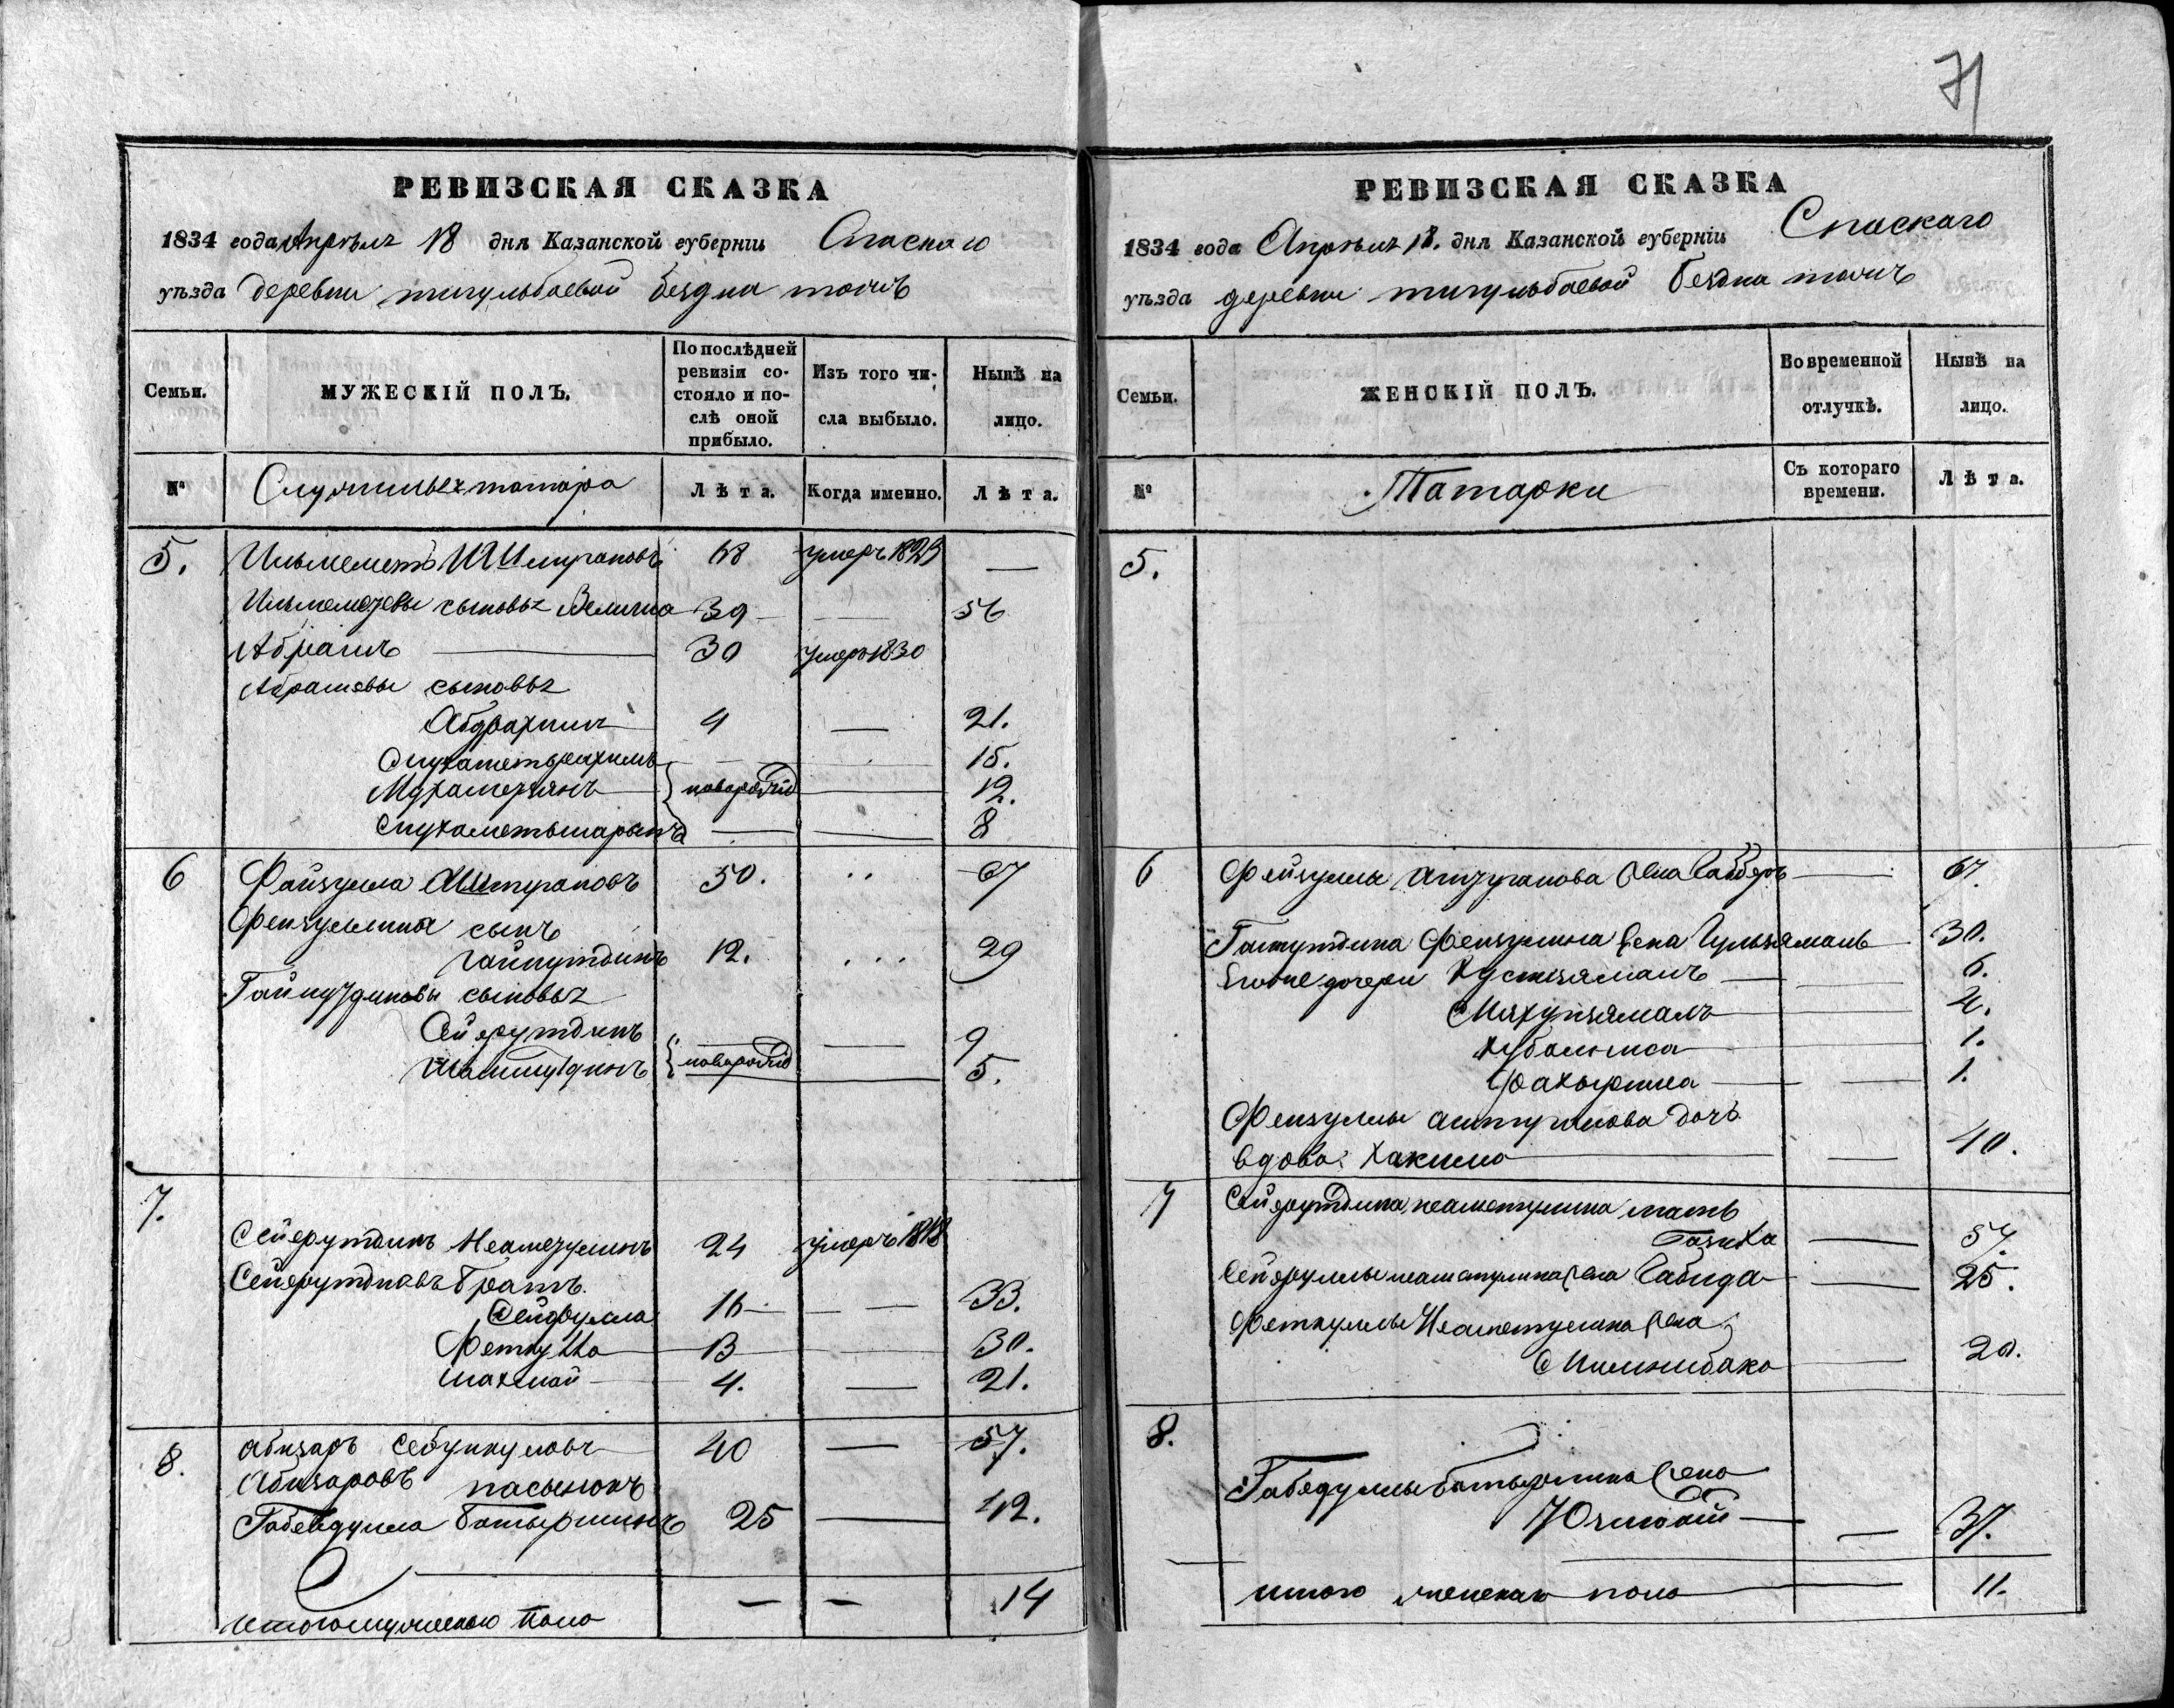 71
РЕВИЗСКАЯ СКАЗКА
1834 года Апреля 18 дня Казанской губерніи Спаскаго
уѣзда деревни тигулбаевой бездна тожъ
Семьи.
МУЖЕСКІЙ ПОЛЪ.
По послѣдней ревизіи состояло и послѣ оной прибыло.
Изъ того числа выбыло.
Нынѣ на лицо.
№
Служилыхъ татаръ
Лѣта.
Когда именно.
Лѣта.
5. 68 умеръ 1829 —
сыновья 39 — 56
Абрашъ — 30 умеръ 1830
Абрашевы сыновья
Абдрахимъ 4 — 21.
Мухаметьрахимъ — 15.
Мухаме*зянъ* новорожд — 12.
Мухаметьшарыпъ — 8
6 Файзулла Аитугановъ 50. 67
Фейзуллинъ сынъ
Гайнутдинъ 12. 29
Гайнутдиновы сыновья
Сейфутдинъ — 9
Шамшутдинъ новорожд — 5.
7.
Сейфутдинъ Неаметуллинъ 24 умеръ 1818
Сейфутдиновъ братъ
Сейфулла 16 — 33.
Феткулла 13 — 30.
Шахмай 4. — 21.
8. Абизаръ 40 — 57.
Абизаровъ пасынокъ
Габейдулла Батыршинъ 25 — 42.
Итого мужескаго пола — — 14
РЕВИЗСКАЯ СКАЗКА
1834 года Апреля 18. дня Казанской губерніи Спаскаго
уѣзда деревни тигулбаевой бездна тожъ
Семьи.
ЖЕНСКІЙ ПОЛЪ.
Во временной отлучкѣ.
Нынѣ на лицо.
№
Татарки
Съ котораго времени.
Лѣта.
5.
6 Фейзуллы Аитуганова жена — 67.
Гайнутдина Фейзуллина жена Гульзямаль 30.
Ево же дочери Хуснзямалъ — 6.
Махупзямалъ 4.
Хубаниса 1.
1.
Фейзуллы Аитуганова дочь
вдова Хакима — 40.
7 Сейфутдина неаметуллина мать
Газиха — 57.
Сейфуллы неаметуллина жена Габида — 25.
Феткуллы Неаметуллина жена
20.
8.
Габедуллы батыршина жена
— 37.
итого женскаго пола — 11.